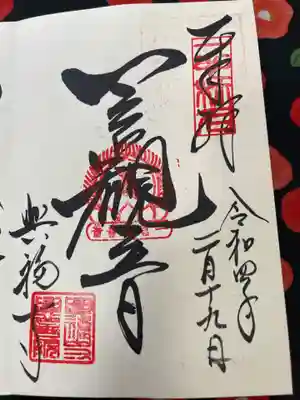 奉拝
令和四年
二月十九日
一言観音
興福寺